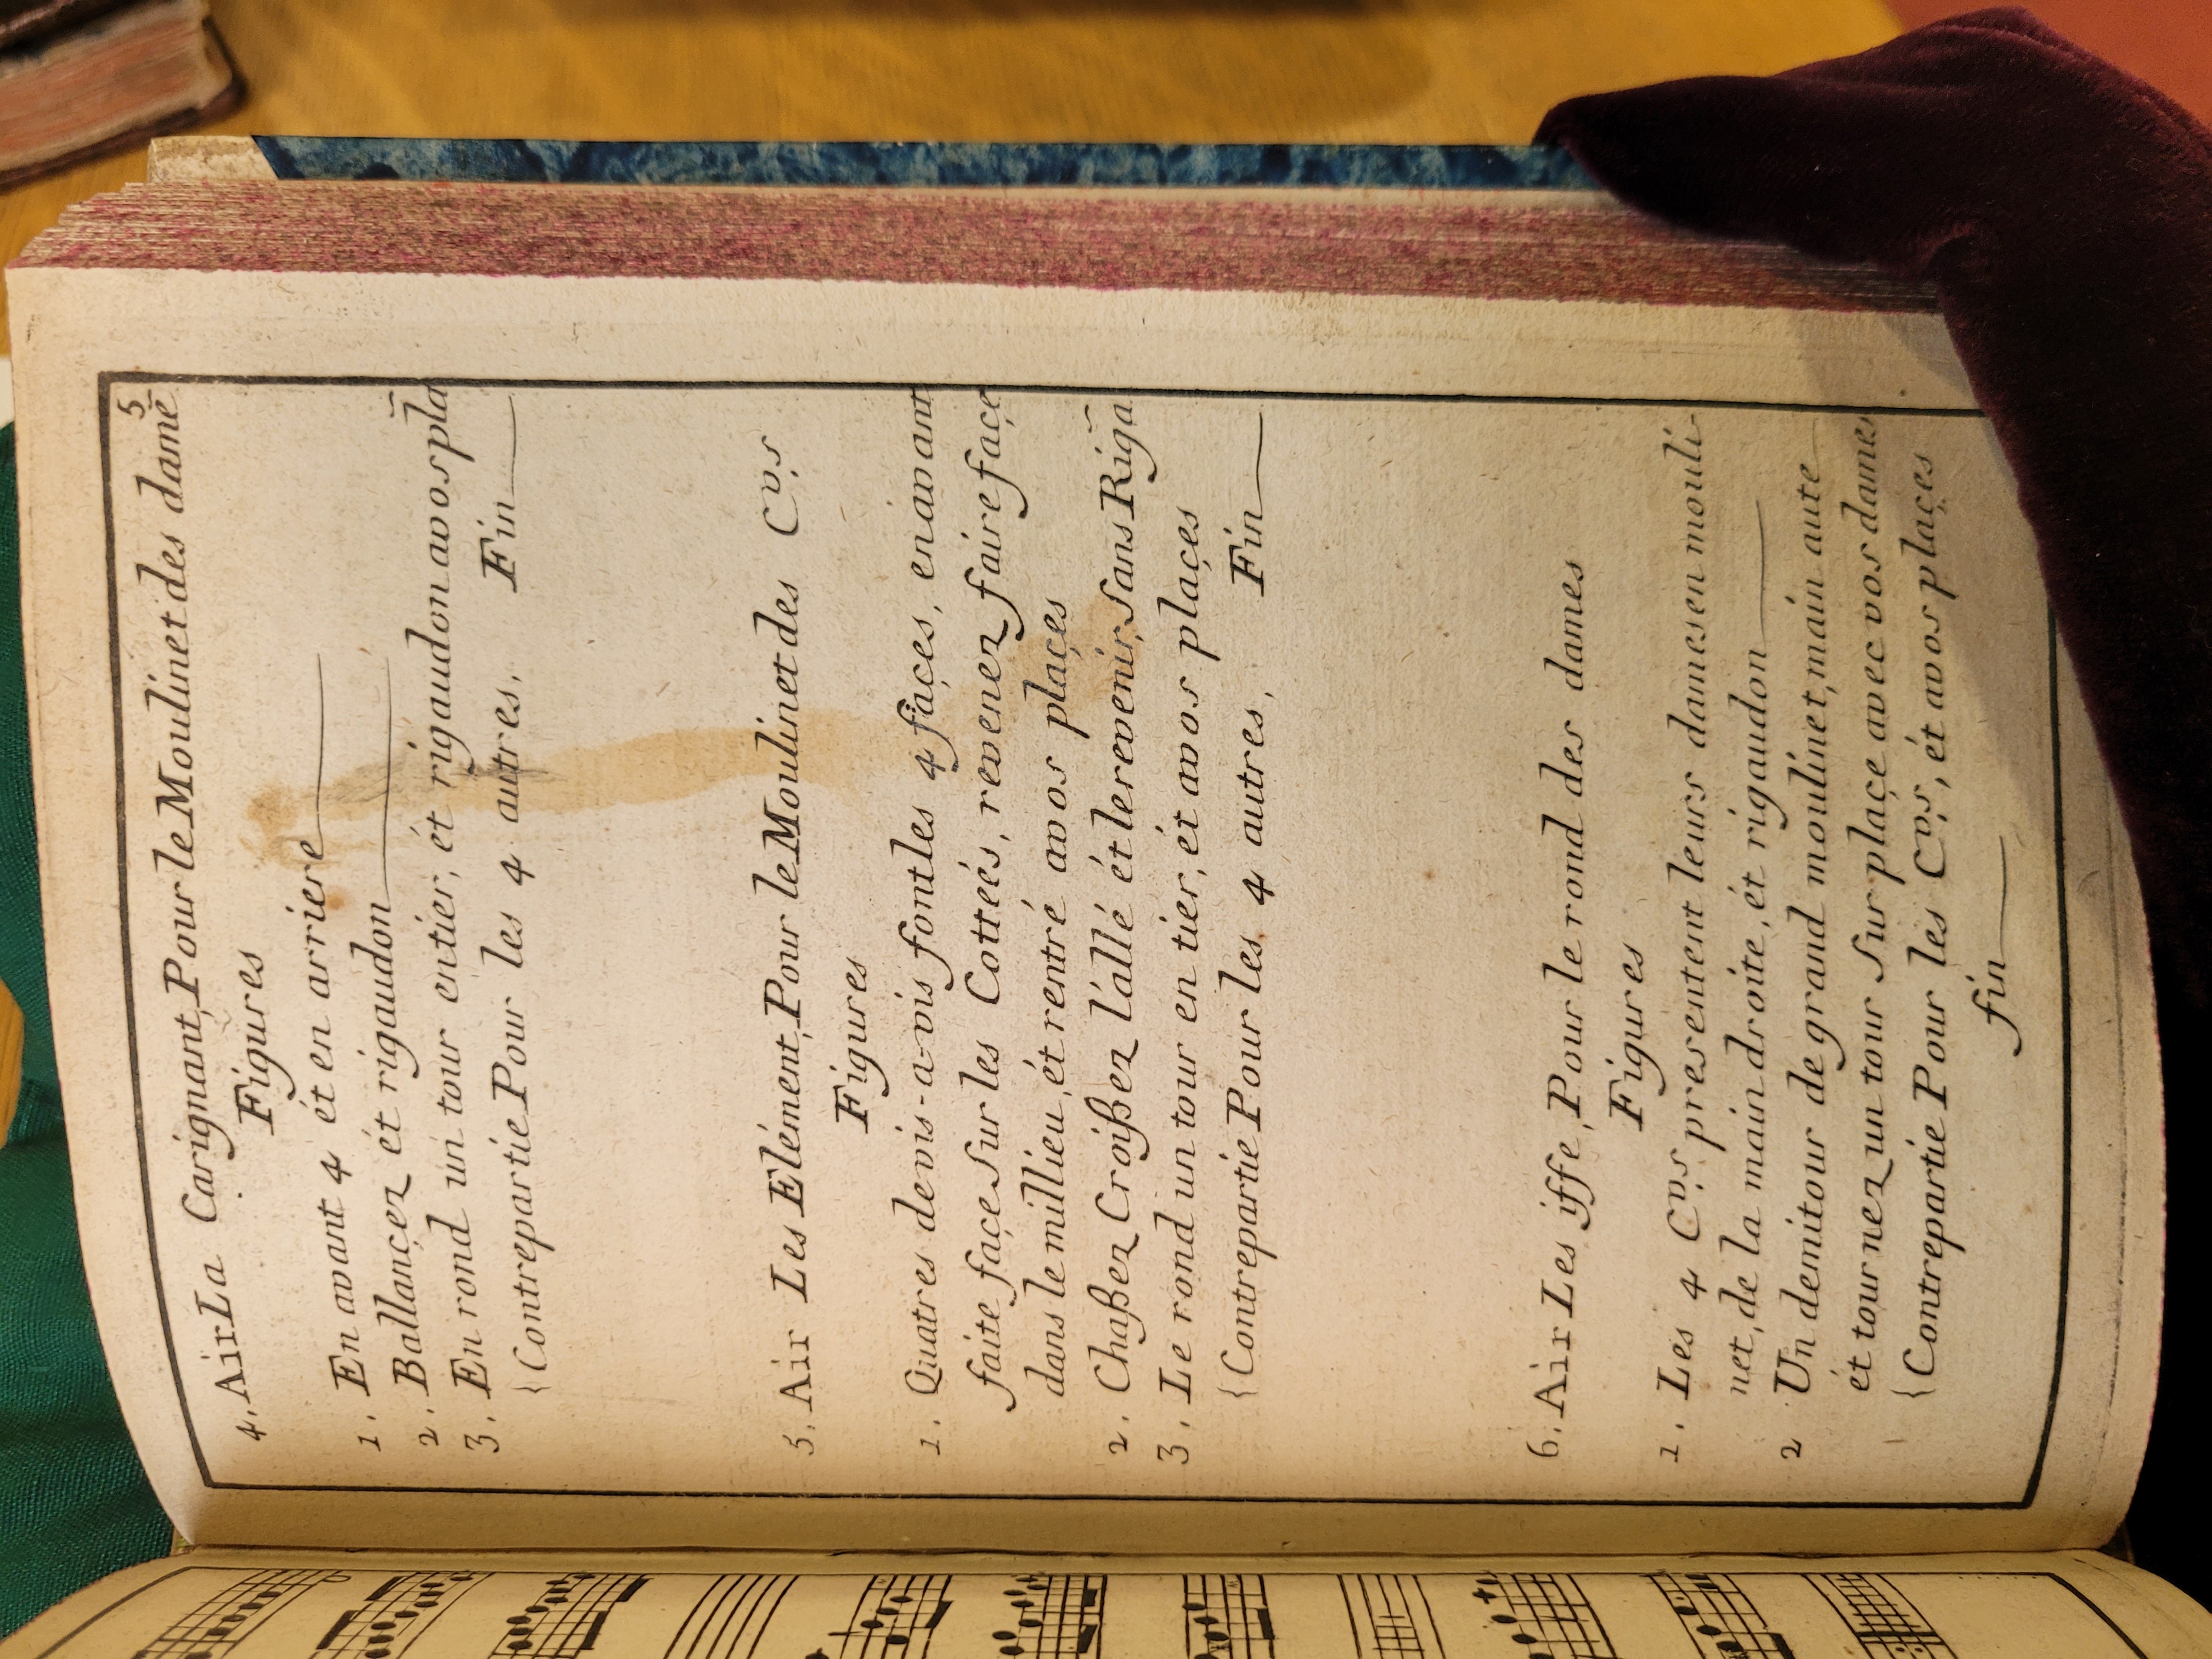 5
4. Air La Carignant, Pour le Moulinet des dame
Figures
1. En avant 4 ét en arriere
2. Ballançez ét rigaudon
3. En rond un tour entier, ét rigaudon a vos pla
{Contrepartie Pour les 4 autres. Fin
5. Air Les Elément, Pour le Moulinet des Cvs
Figures
1. Quatres de vis-a-vis font les 4 façes, en avant
faite façe sur les Cotteés, revenez faire façe
dans le millieu, ét rentré a vos plaçes
2. Chaßez Croißez l'allé ét le revenir, sans Riga
3. Le rond un tour en tier, ét a vos plaçes
{Contrepartie Pour les 4 autres, Fin
6. Air Les iffe, Pour le rond des dames
Figures
1. Les 4 Cvs presentent leurs dames en mouli-
net, de la main droite, ét rigaudon
2 Un demi tour de grand moulinet, main aute
ét tournez un tour sur plaçe avec vos dames
{Contrepartie Pour les Cvs, ét a vos plaçes
fin